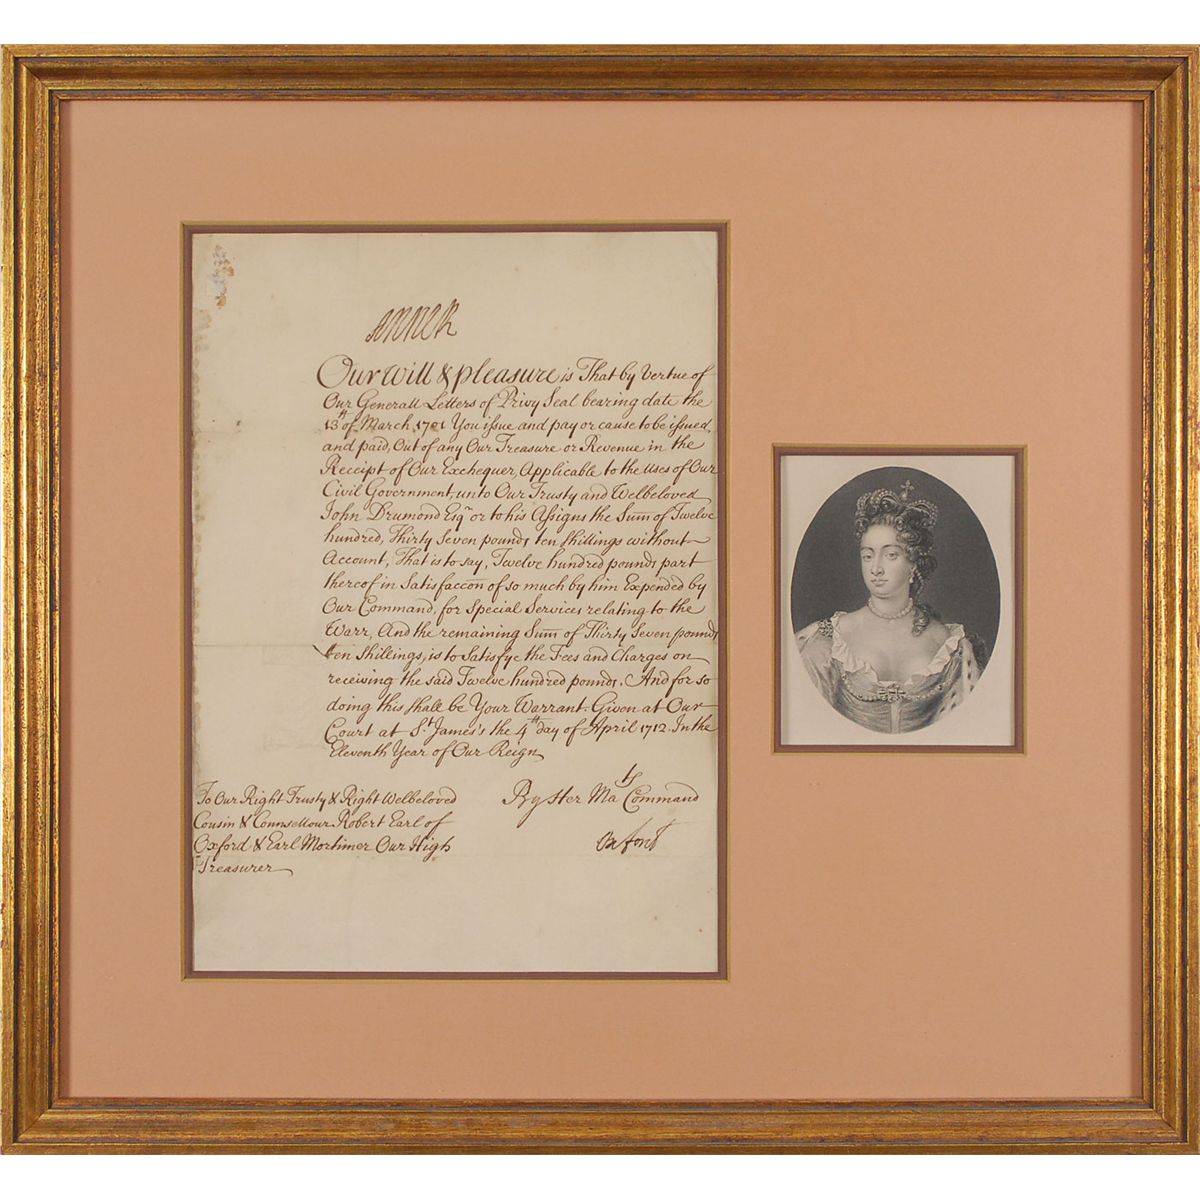 Anne R
Our Will & Pleasure is That by Vertue of
Our Generall Letters of Privy Seal bearing date the
13th of March, 1701 You issue and pay or cause to be issued
and paid, Out of any Our Treasure or Revenue in the
Receipt of Our Exchequer, Applicable to the Uses of Our
Civil Government, unto Our Trusty and Welbeloved
John Drumond Esqr or to his Assigns the Sum of Twelve
hundred, Thirty Seven pounds ten shillings without
Account, That is to say, Twelve hundred pounds part
thereof in Satisfaccon of so much by him Expended by
Our Command, for Special Services relating to the
Warr, And the remaining Sum of Thirty Seven pounds
ten Shillings, is to Satisfye the Fees and Charges on
receiving the said Twelve hundred pounds. And for so
doing this shall be Your Warrant Given at Our
Court at St. James's the 4th day of April 1712. In the
Eleventh Year of Our Reign
To Our Right Trusty & Right Welbeloved
Cousin & Counsellour Robert Earl of
Oxford & Earl Mortimer Our High
Treasurer
By Her Mats Command
Oxford